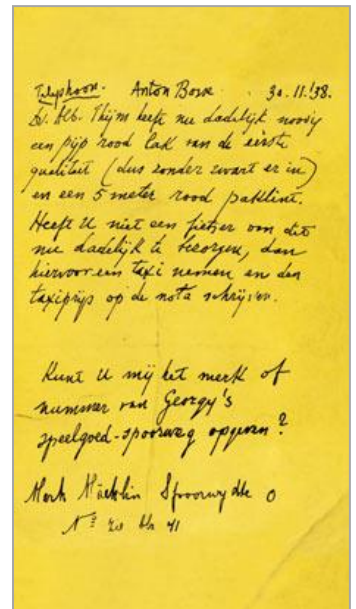 Telephoon. Anton Bosse 30.11.'38.
Dr. Alb. Thijm heeft nu dadelijk noodig
een pijp rood lak van de eerste
qualiteit (dus zonder zwart er in)
en een 5 meter rood paklint.
Heeft U niet een fietser om dit
nu dadelijk te bezorgen, dan
hiervoor een taxi nemen en den
taxiprijs op de nota schrijven.
Kunt U mij het merk of
nummer van Georgy's
speelgoed-spoorweg opgeven?
Merk Märklin Spoorwydte 0
No 20